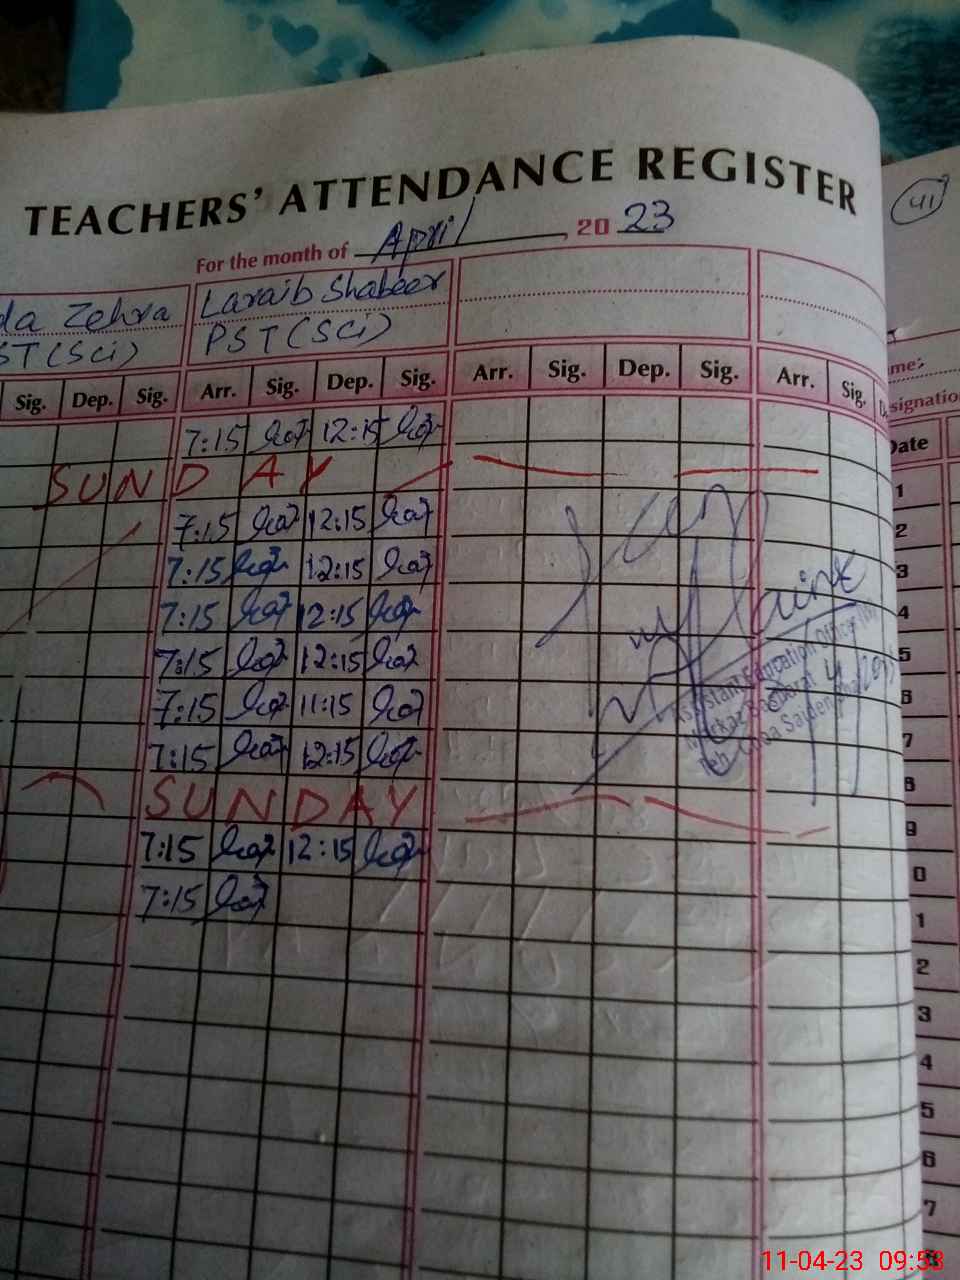 TEACHERS' ATTENDANCE REGISTER
41
For the month of April, 2023
da Zehra Laraib Shabeer
ST (Sci) PST (Sci)
me:
signatio
Sig. Dep. Sig. Arr. Sig. Dep. Sig. Arr. Sig. Dep. Sig. Arr. Sig. D
Date
7:15 12:15
1
SUNDAY
2
7:15 12:15
3
7:15 12:15
4
7:15 12:15
5
7:15 12:15
6
7:15 11:15
7
7:15 12:15
8
SUNDAY
9
7:15 12:15
0
7:15
1
2
3
4
5
6
7
8
Assistant Education Officer
Markaz
Teh. Choa Saiden Shah
11-04-23 09:53